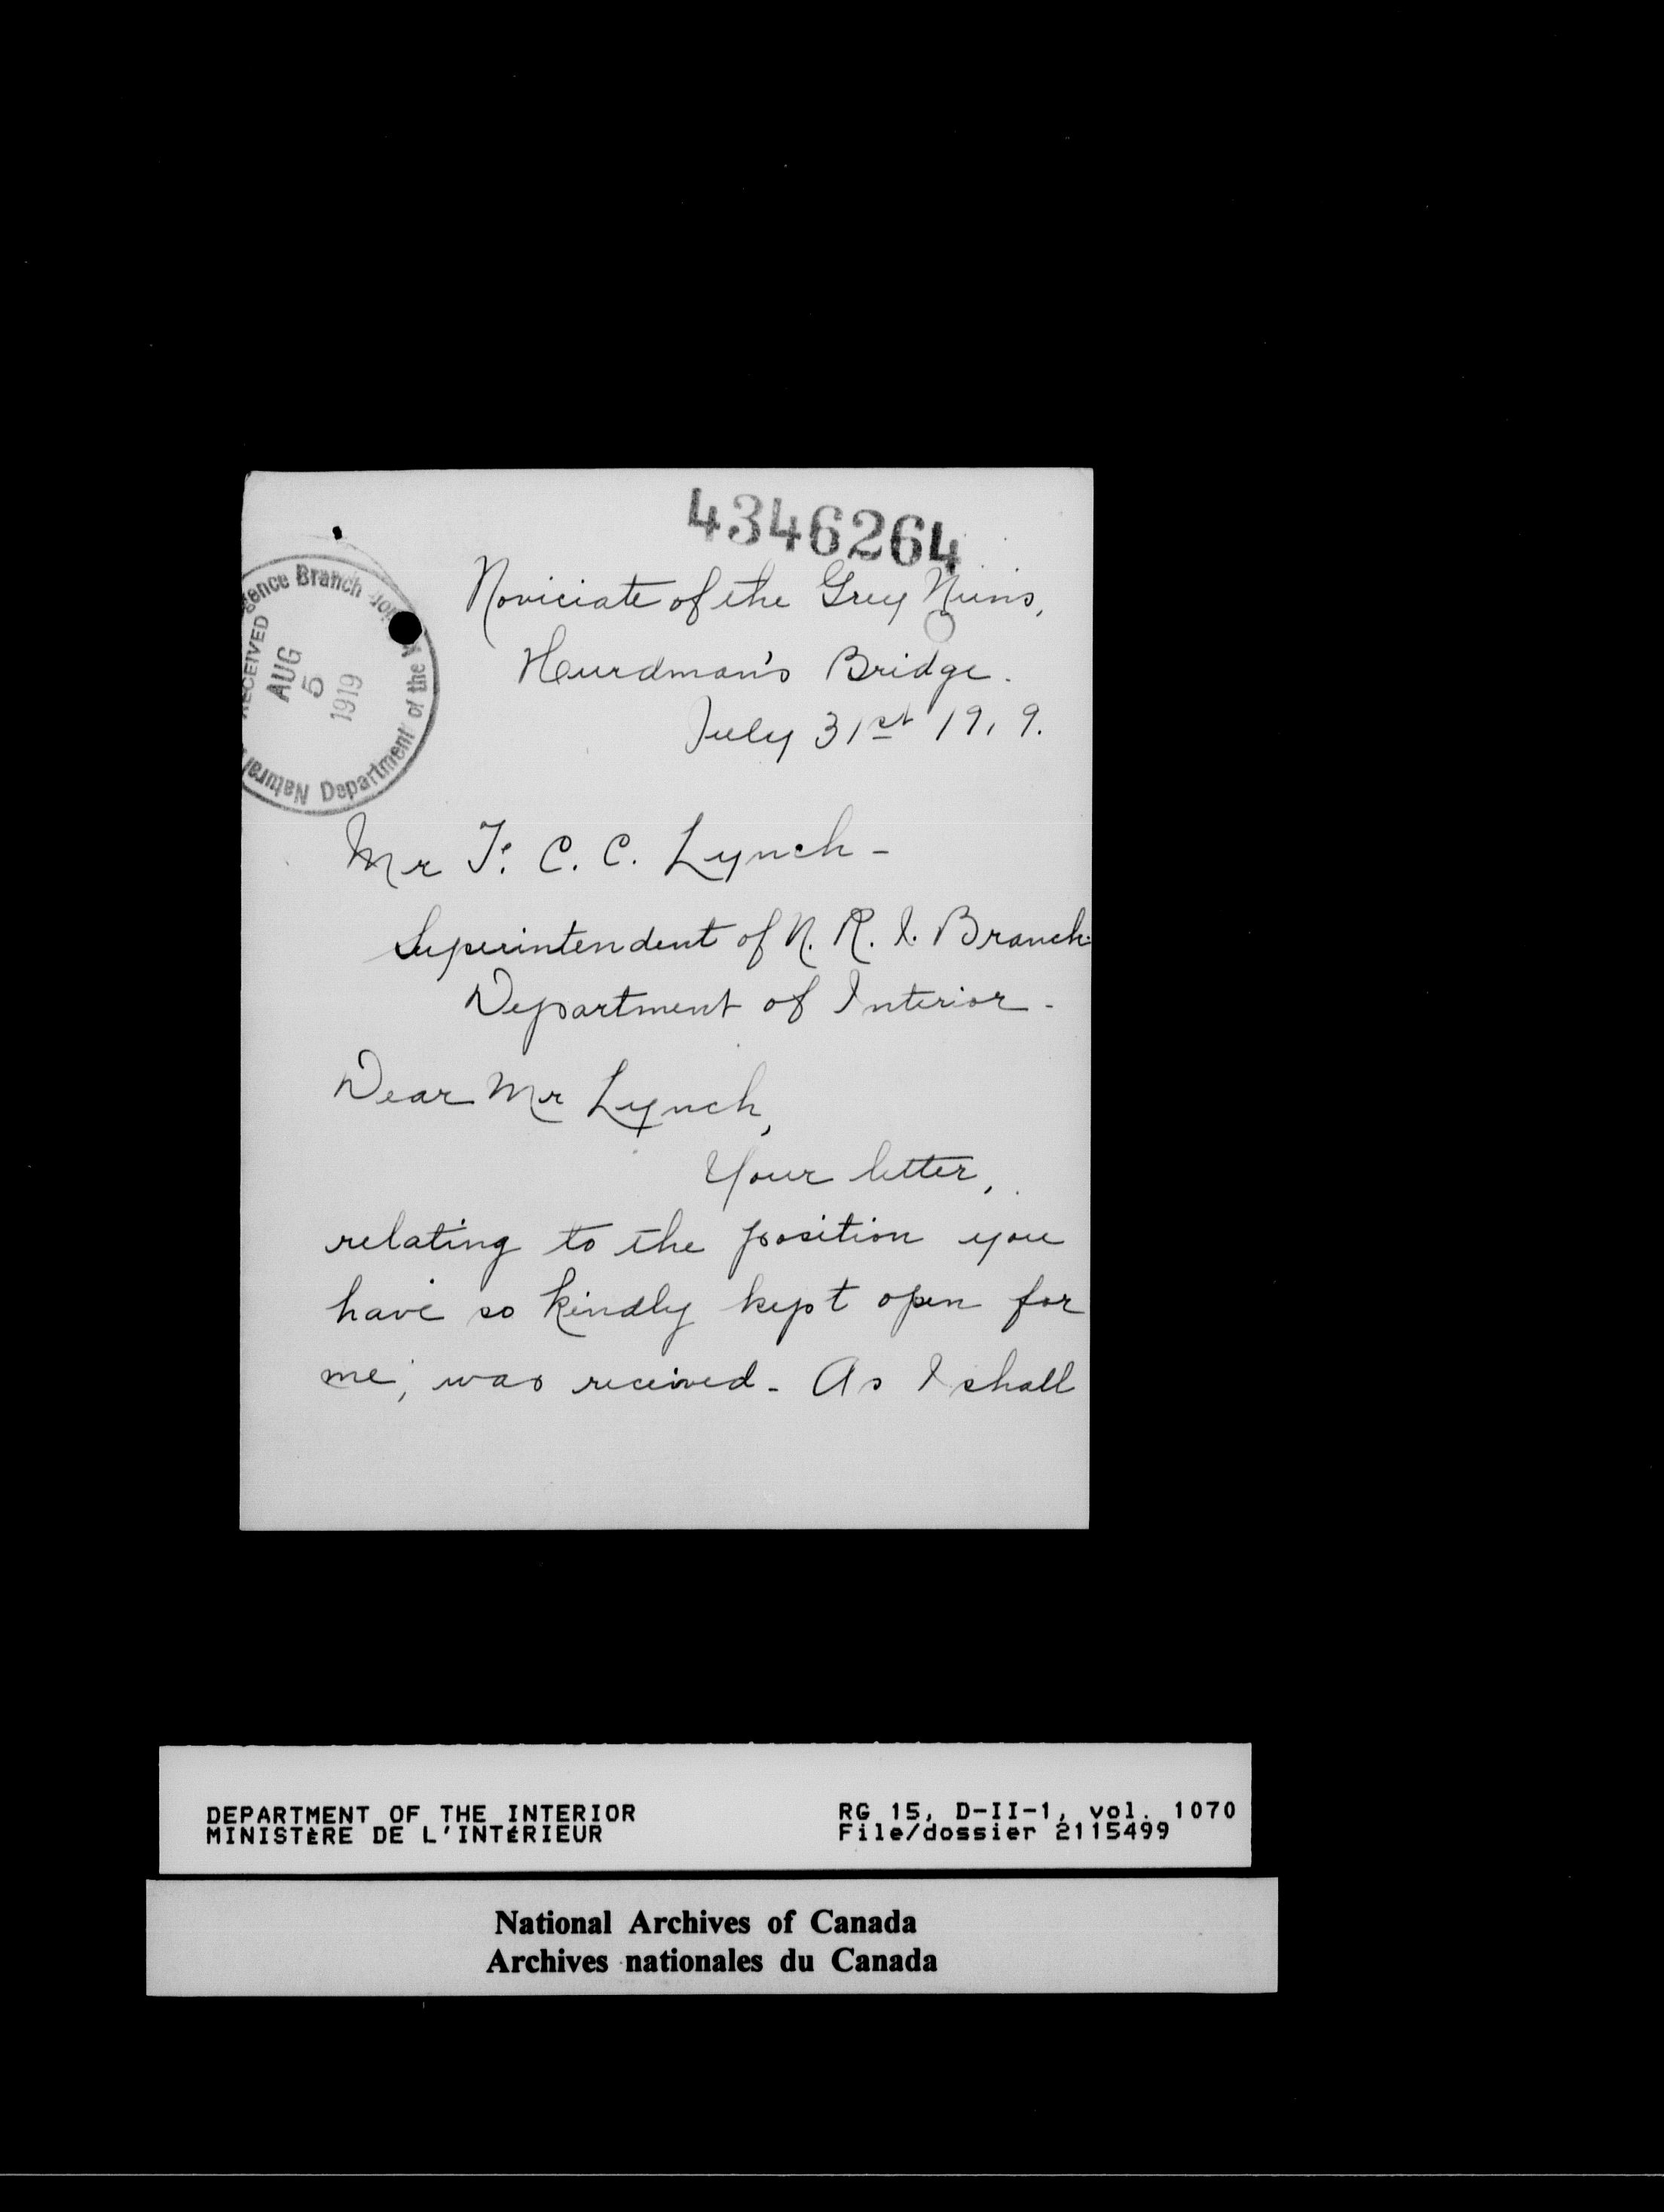 4346264
gence Branch
RECEIVED
AUG
5
1919
Natural
Department of the
Noviciate of the Grey Nuns,
Hurdman's Bridge.
July 31st 1919.
Mr F. C. C. Lynch -
Superintendent of N. R. I. Branch
Department of Interior -
Dear Mr Lynch,
Your letter,
relating to the position you
have so kindly kept open for
me, was received - As I shall
DEPARTMENT OF THE INTERIOR
MINISTÈRE DE L'INTÉRIEUR
RG 15, D-II-1, vol. 1070
File/dossier 2115499
National Archives of Canada
Archives nationales du Canada